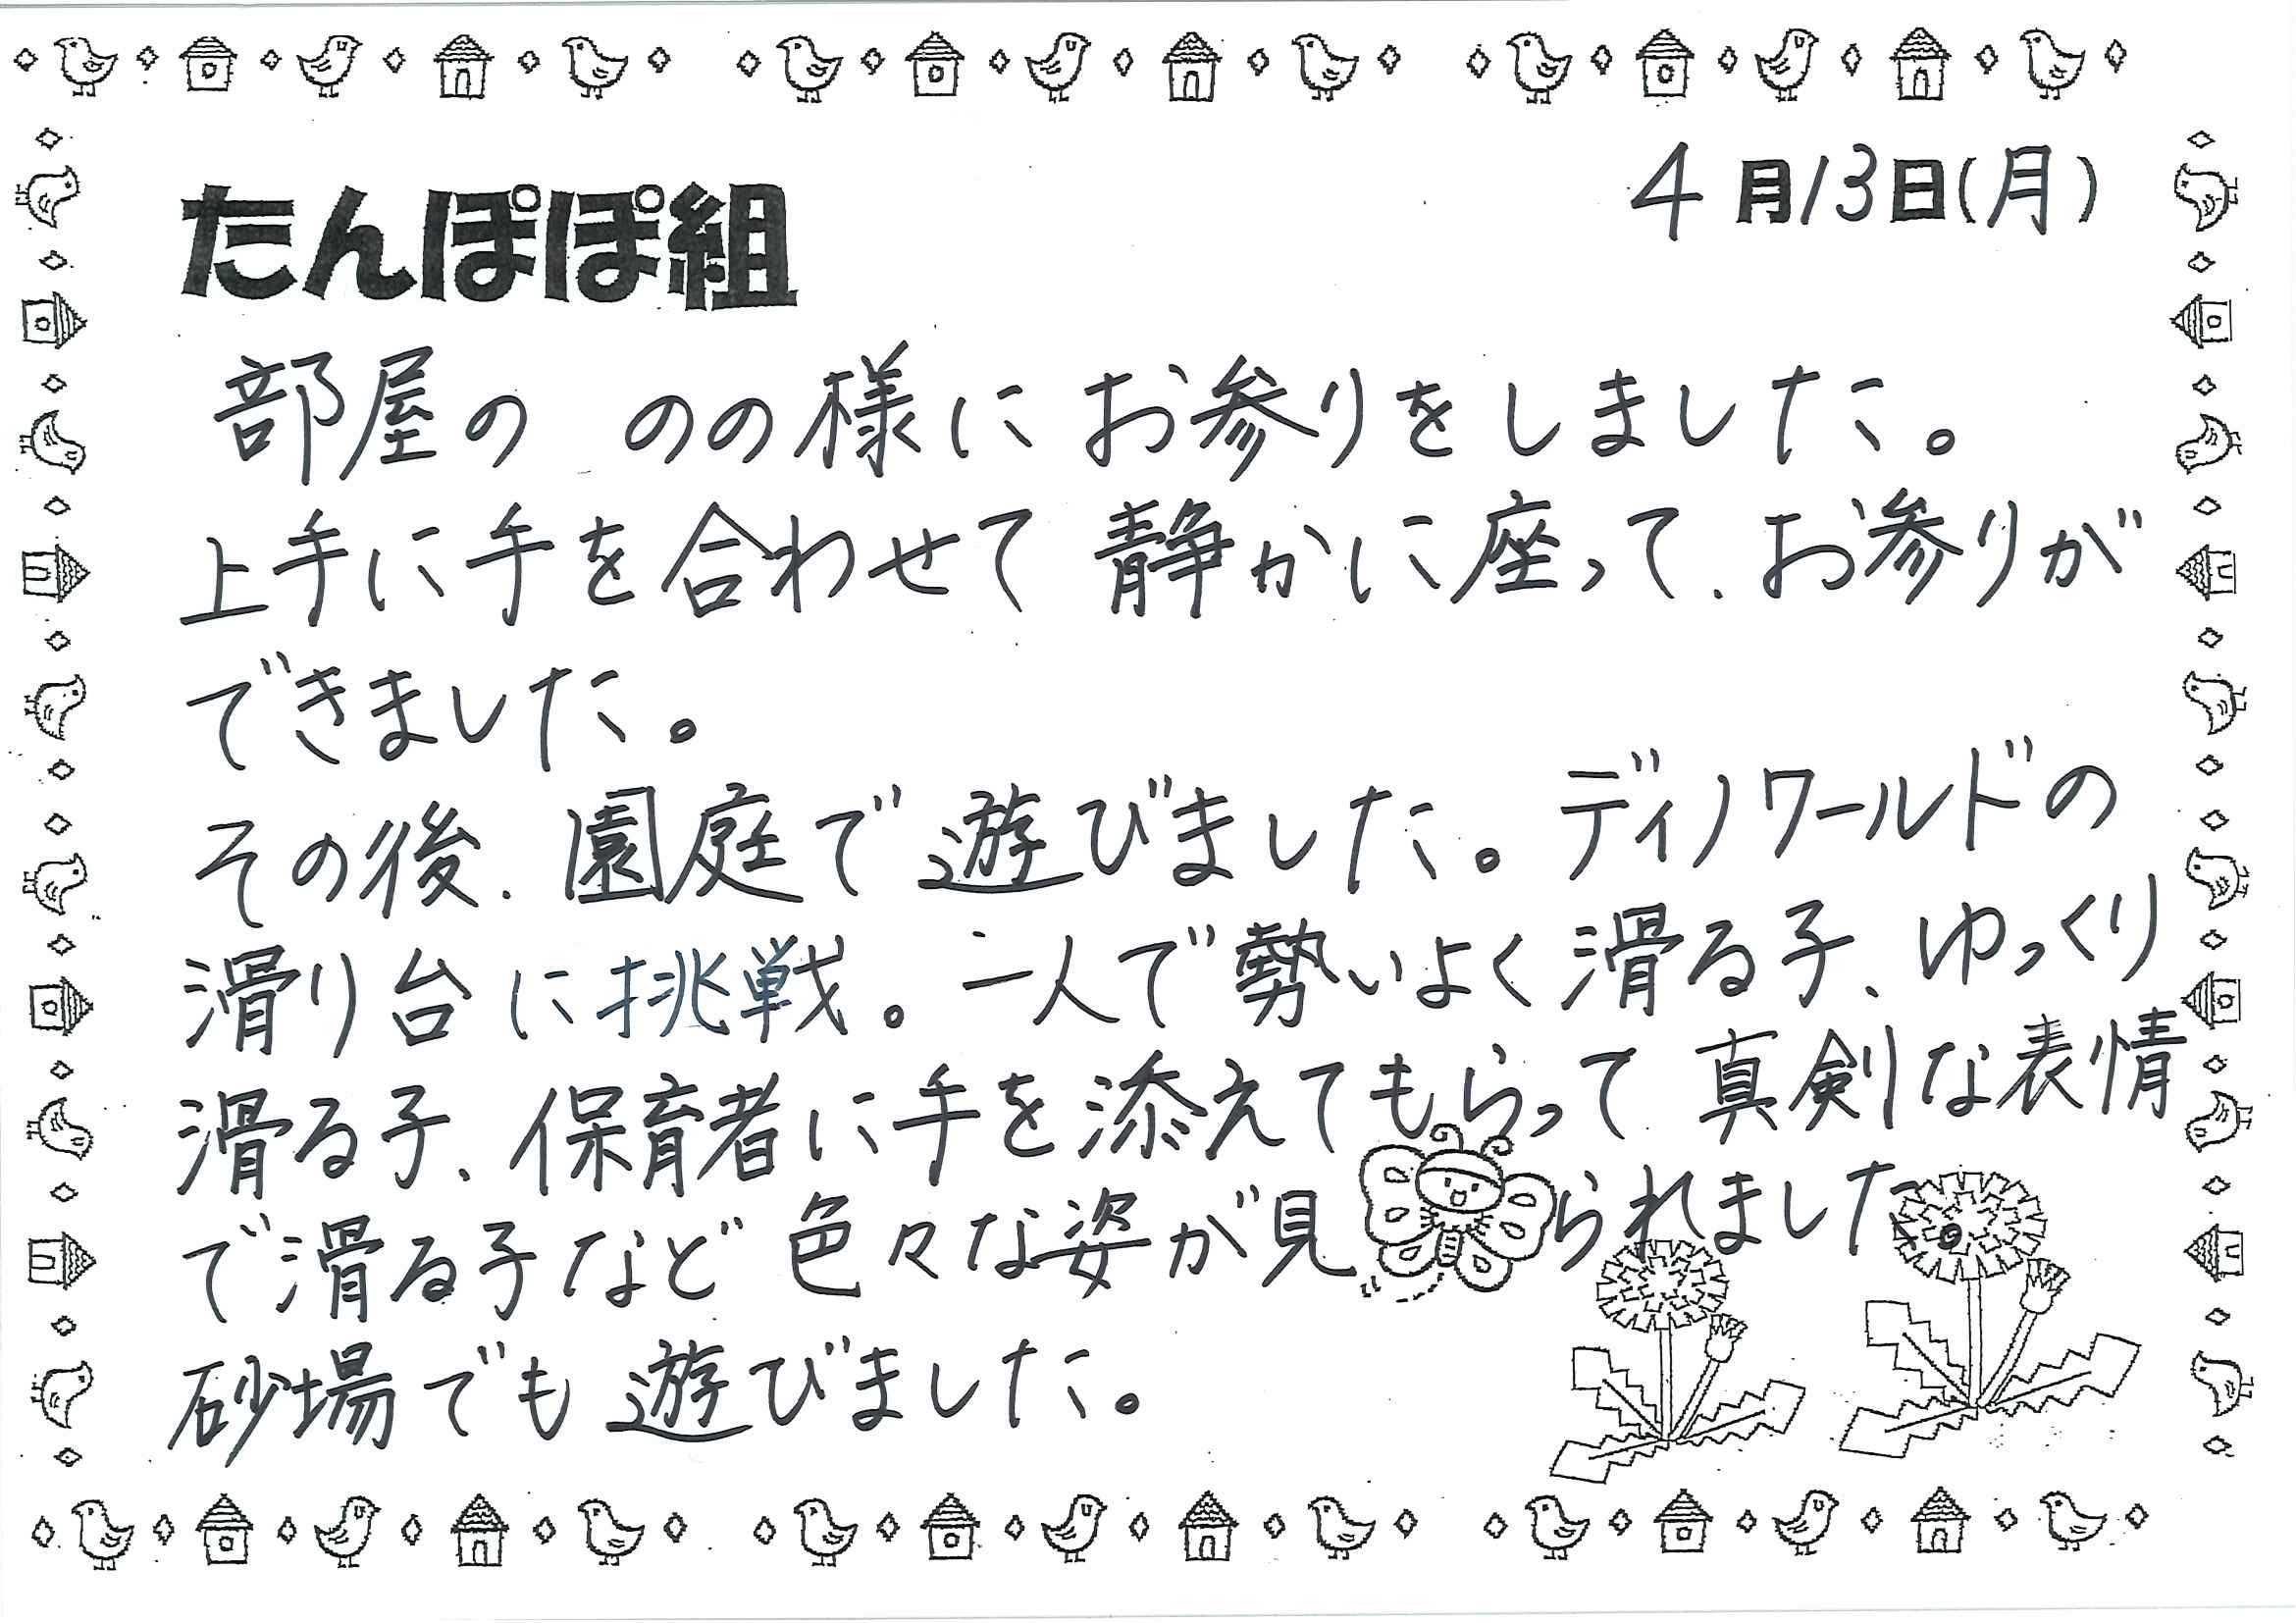 4月13日(月)
たんぽぽ組
部屋の のの様にお参りをしました。
上手に手を合わせて静かに座って、お参りが
できました。
その後、園庭で遊びました。ディノワールドの
滑り台に挑戦。一人で勢いよく滑る子、ゆっくり
滑る子、保育者に手を添えてもらって真剣な表情
で滑る子など色々な姿が見られました。
砂場でも遊びました。